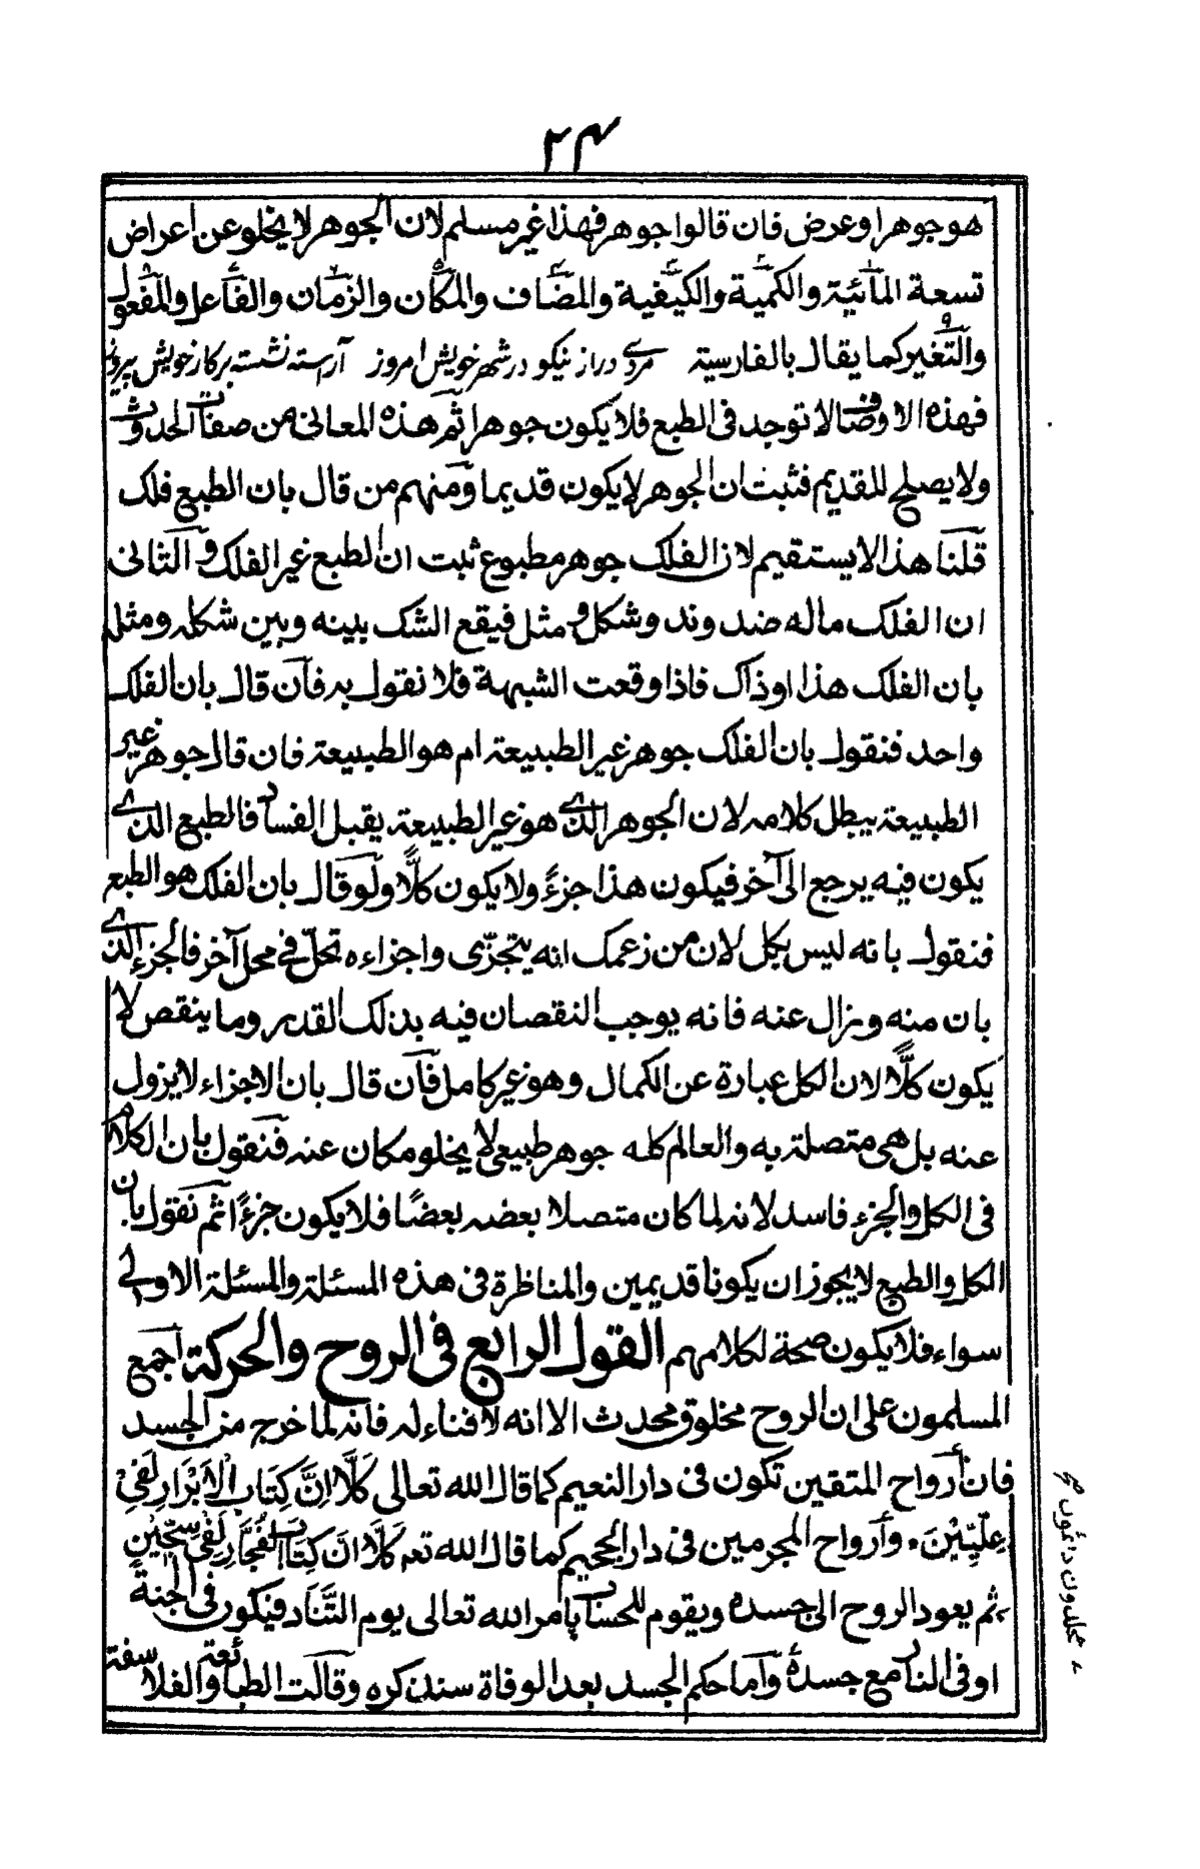 ٢٤
هو جوهر او عرض فان قالوا جوهر فهذا غير مسلم لان الجوهر لا يخلو عن اعراض
تسعة المائية والكمية والكيفية والمضاف والمكان والزمان والفاعل والمفعول
والتغير كما يقال بالفارسية مردے دراز نیکو در شهر خویش امروز آراسته نشسته برکار خویش پیروز
فهذه الاوصاف لا توجد فى الطبع فلا يكون جوهرا ثم هذه المعانى من صفات الحدوث
ولا يصلح للقديم فثبت ان الجوهر لا يكون قديما ومنهم من قال بان الطبع فلك
قلنا هذا لا يستقيم لان الفلك جوهر مطبوع ثبت ان الطبع غير الفلك والثانى
ان الفلك ماله ضد وند وشكل ومثل فيقع الشك بينه وبين شكله ومثله
بان الفلك هذا او ذاك فاذا وقعت الشبهة فلا نقول به فان قال بان الفلك
واحد فنقول بان الفلك جوهر غير الطبيعة ام هو الطبيعة فان قال جوهر غير
الطبيعة يبطل كلامه لان الجوهر الذے هو غير الطبيعة يقبل الفساد فالطبع الذے
يكون فيه يرجع الى آخر فيكون هذا جزءً ولا يكون كلًّا ولو قال بان الفلك هو الطبع
فنقول بانه ليس بكل لان من زعمك انه يتجزّى واجزاءه تحلّ فى محل آخر فالجزء الذے
بان منه ويزال عنه فانه يوجب النقصان فيه بذلك القدر وما ينقص لا
يكون كلًّا لان الكل عبارة عن الكمال وهو غير كامل فان قال بان الاجزاء لا يزول
عنه بل هى متصلة به والعالم كله جوهر طبيعى لا يخلو مكان عنه فنقول بان الكلام
فى الكل والجزء فاسد لانه لما كان متصلا بعضه بعضًا فلا يكون جزءً اثم نقول بان
الكل والطبع لا يجوز ان يكونا قديمين والمناظرة فى هذه المسئلة والمسئلة الاولے
سواء فلا يكون صحة لكلامهم القول الرابع فى الروح والحركة اجمع
المسلمون على ان الروح مخلوق محدث الا انه لا فناء له فانه لما خرج من الجسد
فان أرواح المتقين تكون فى دار النعيم كما قال الله تعالى كَلَّا اِنَّ كِتَابَ الْاَبْرَارِ لَفِيْ
عِلِّيِّيْنَ۔ وأرواح المجرمين فى دار الجحيم كما قال الله تعه كَلَّا اِنَّ كِتَابَ الفُجَّارِ لَفِىْ سِجِّيْنٍ
ثم يعود الروح الى جسده ويقوم للحساب بامر الله تعالى يوم التَّنَاد فيكون فى الجنة
او فى النار مع جسده وآما حكم الجسد بعد الوفاة سنذكره وقالت الطبائعة والفلاسفة